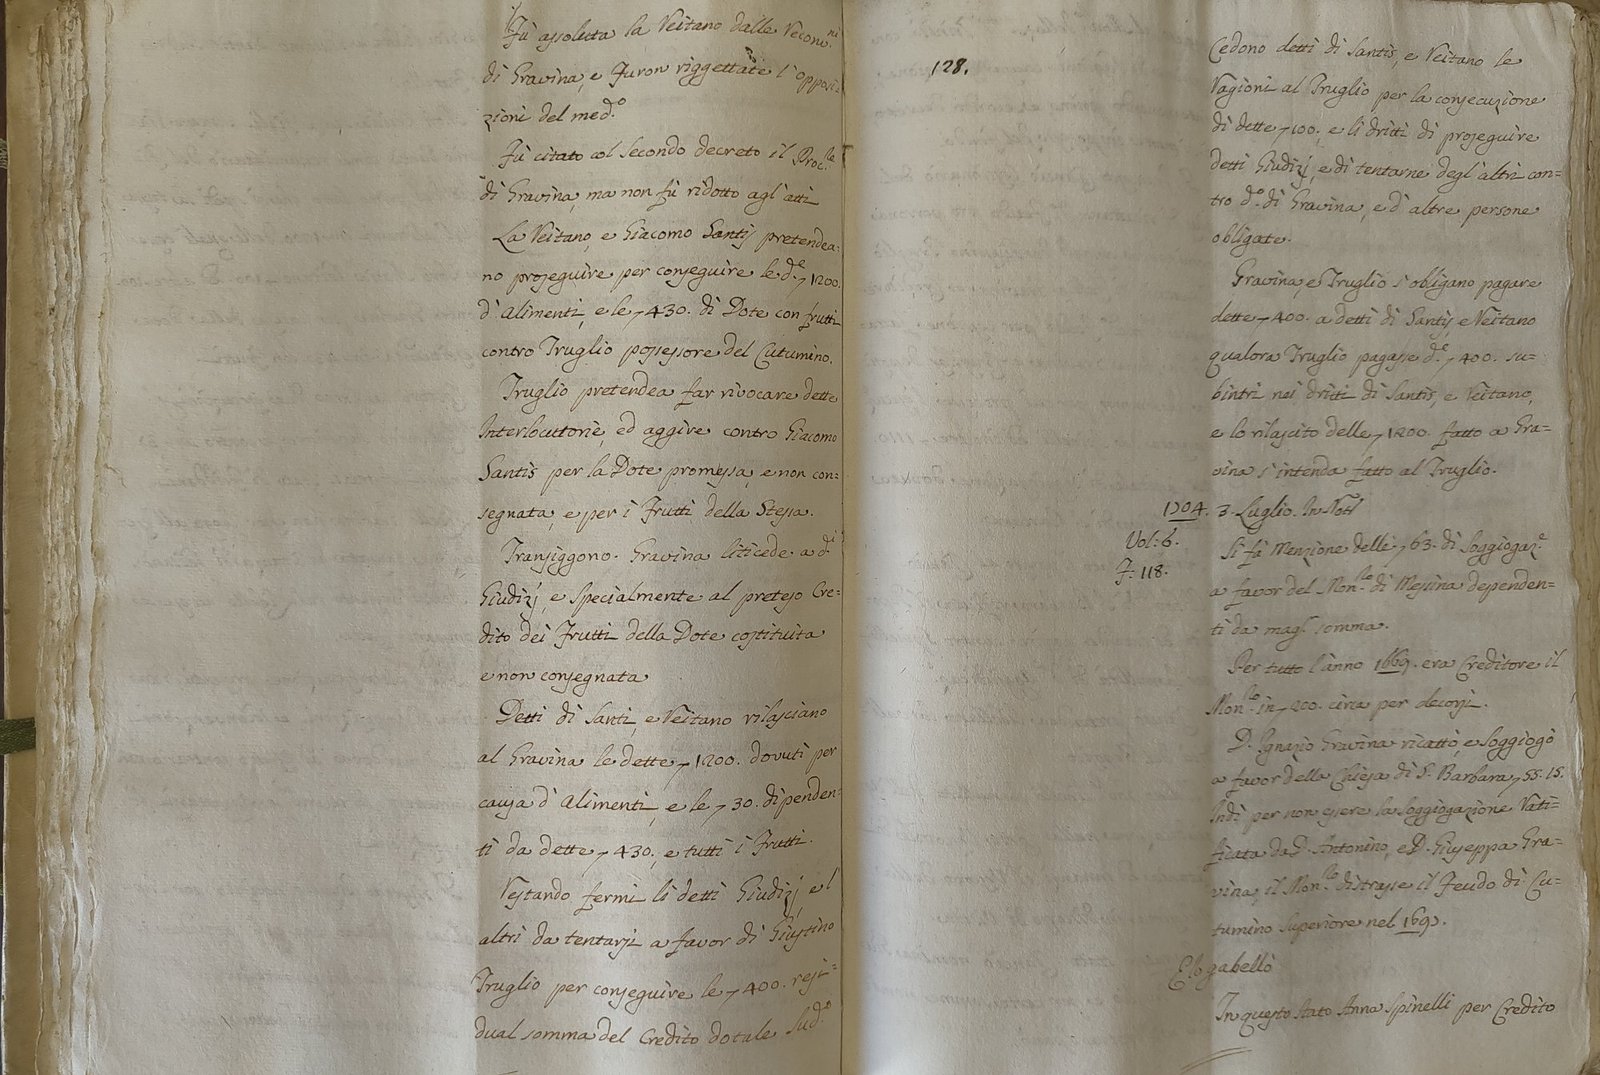 Fù assoluta la Veitano dalle Reconv.ni
di Gravina, e furon riggettate l'opposi
zioni del med.o
Fù citato col secondo decreto il Proc.le
di Gravina, ma non fù ridotto agl'atti
La Veitano, e Giacomo Santis pretendea=
no proseguire per conseguire le d.e 1200.
d'Alimenti, e le 430. di Dote con frutti
contro Truglio possessore del Cutumino.
Truglio pretendea far rivocare dette
Interlocutorie, ed aggire contro Giacomo
Santis per la Dote promessa, e non con=
segnata, e per i frutti della Stessa.
Transiggono. Gravina liticede a d.i
Giudizj, e specialmente al preteso Cre=
dito dei Frutti della Dote costituita
e non consegnata
Detti di Santi, e Veitano rilasciano
al Gravina le dette 1200. dovuti per
causa d'Alimenti, e le 30. dipenden=
ti da dette 430., e tutti i Frutti.
Restando fermi li detti Giudizj, e l
altri da tentarsi a favor di Giustino
Truglio per conseguire le 400. resi=
dual somma del Credito dotale Sud.o
128.
Cedono detti di Santis, e Veitano le
Ragioni al Truglio per la consecuzione
di dette 400. e li dritti di proseguire
detti Giudizj, e di tentarne degl'altri con=
tro d.o di Gravina, e d'altre persone
obligate.
Gravina, e Truglio s'obligano pagare
dette 400. a detti di Santis e Veitano
qualora Truglio pagasse d.e 400. su=
bintri nei dritti di Santis, e Veitano,
e lo rilascito delle 1200. fatto a Gra=
vina s'intenda fatto al Truglio.
1704. 3. Luglio. In Not.
Vol: 6.
F: 118.
Si fà Menzione delle 63. di Soggiogaz.e
a favor del Mon.rio di Messina dependen=
ti da mag.r somma.
Per tutto l'anno 1669. era Creditore il
Mon.rio in 200. circa per decorsi.
D. Ignazio Gravina ricattò, e Soggiogò
a favor della Chiesa di S. Barbara 55.15.
Indi per non essere la Soggiogazione Rati=
ficata da D. Antonino, e D. Giuseppa Gra=
vina, il Mon.rio distrasse il Feudo di Cu=
tumino Superiore nel 169
E lo gabellò
In questo Stato Anna Spinelli per Credito